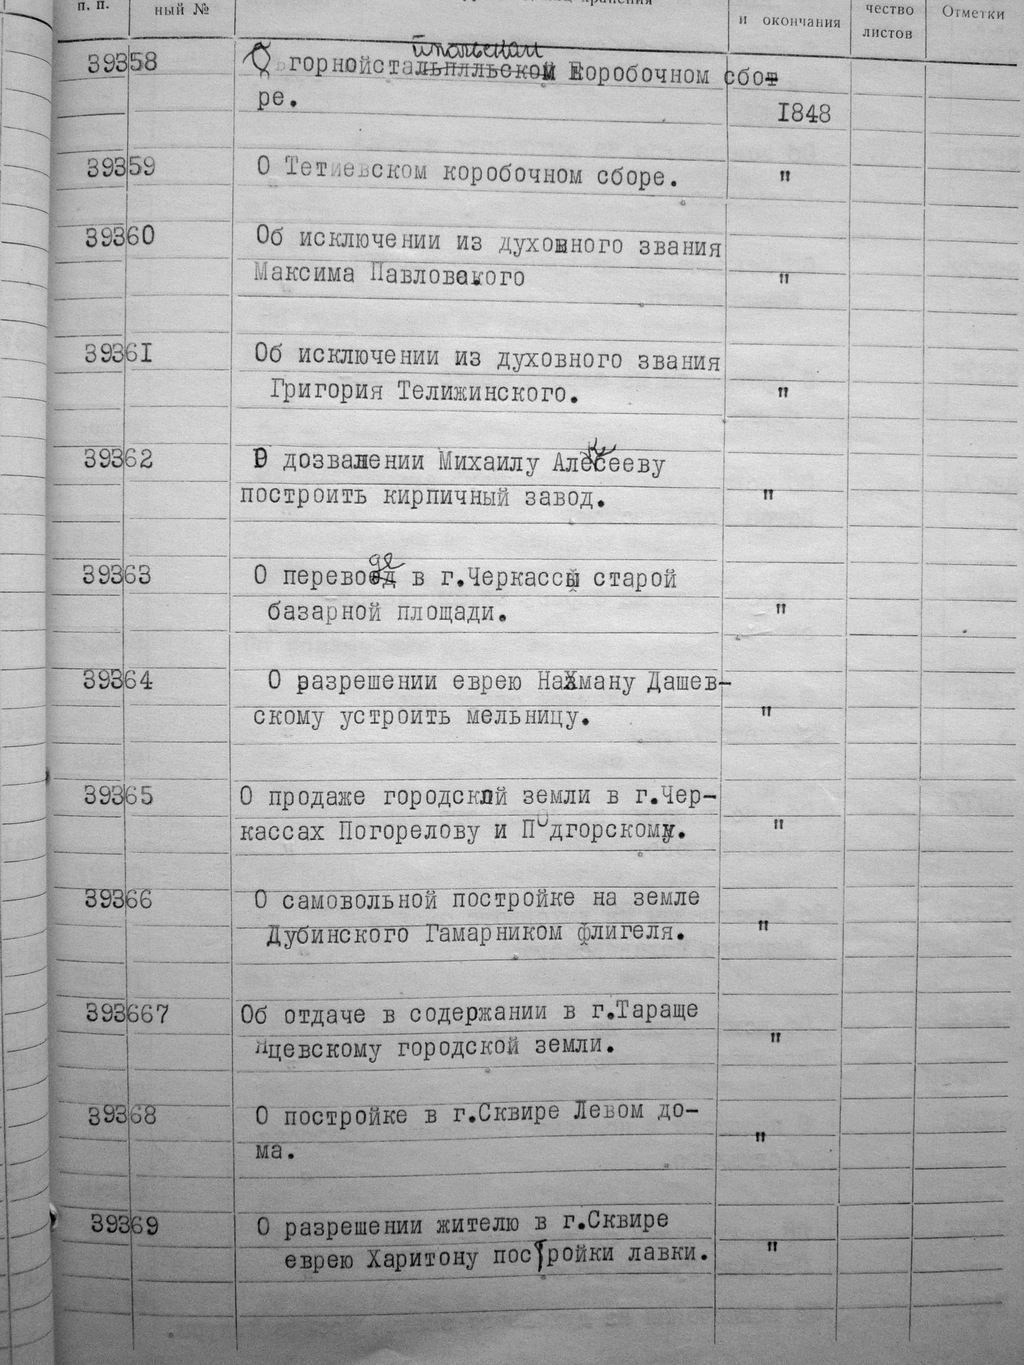 п. п.
ный №
и окончания
чество
листов
Отметки
39358 О горнойстальплльской коробочном сбо
ре.
1848
39359 О Тетиевском коробочном сборе. "
39360 Об исключении из духовного звания
Максима Павловского "
39361 Об исключении из духовного звания
Григория Телижинского. "
39362 О дозвалении Михаилу Алексееву
построить кирпичный завод. "
39363 О переводе в г.Черкассы старой
базарной площади. "
39364 О разрешении еврею Нахману Дашев-
скому устроить мельницу. "
39365 О продаже городской земли в г.Чер-
кассах Погорелову и Подгорскому. "
39366 О самовольной постройке на земле
Дубинского Гамарником флигеля. "
393667 Об отдаче в содержании в г.Тараще
Яцевскому городской земли. "
39368 О постройке в г.Сквире Левом до-
ма. "
39369 О разрешении жителю в г.Сквире
еврею Харитону постройки лавки. "